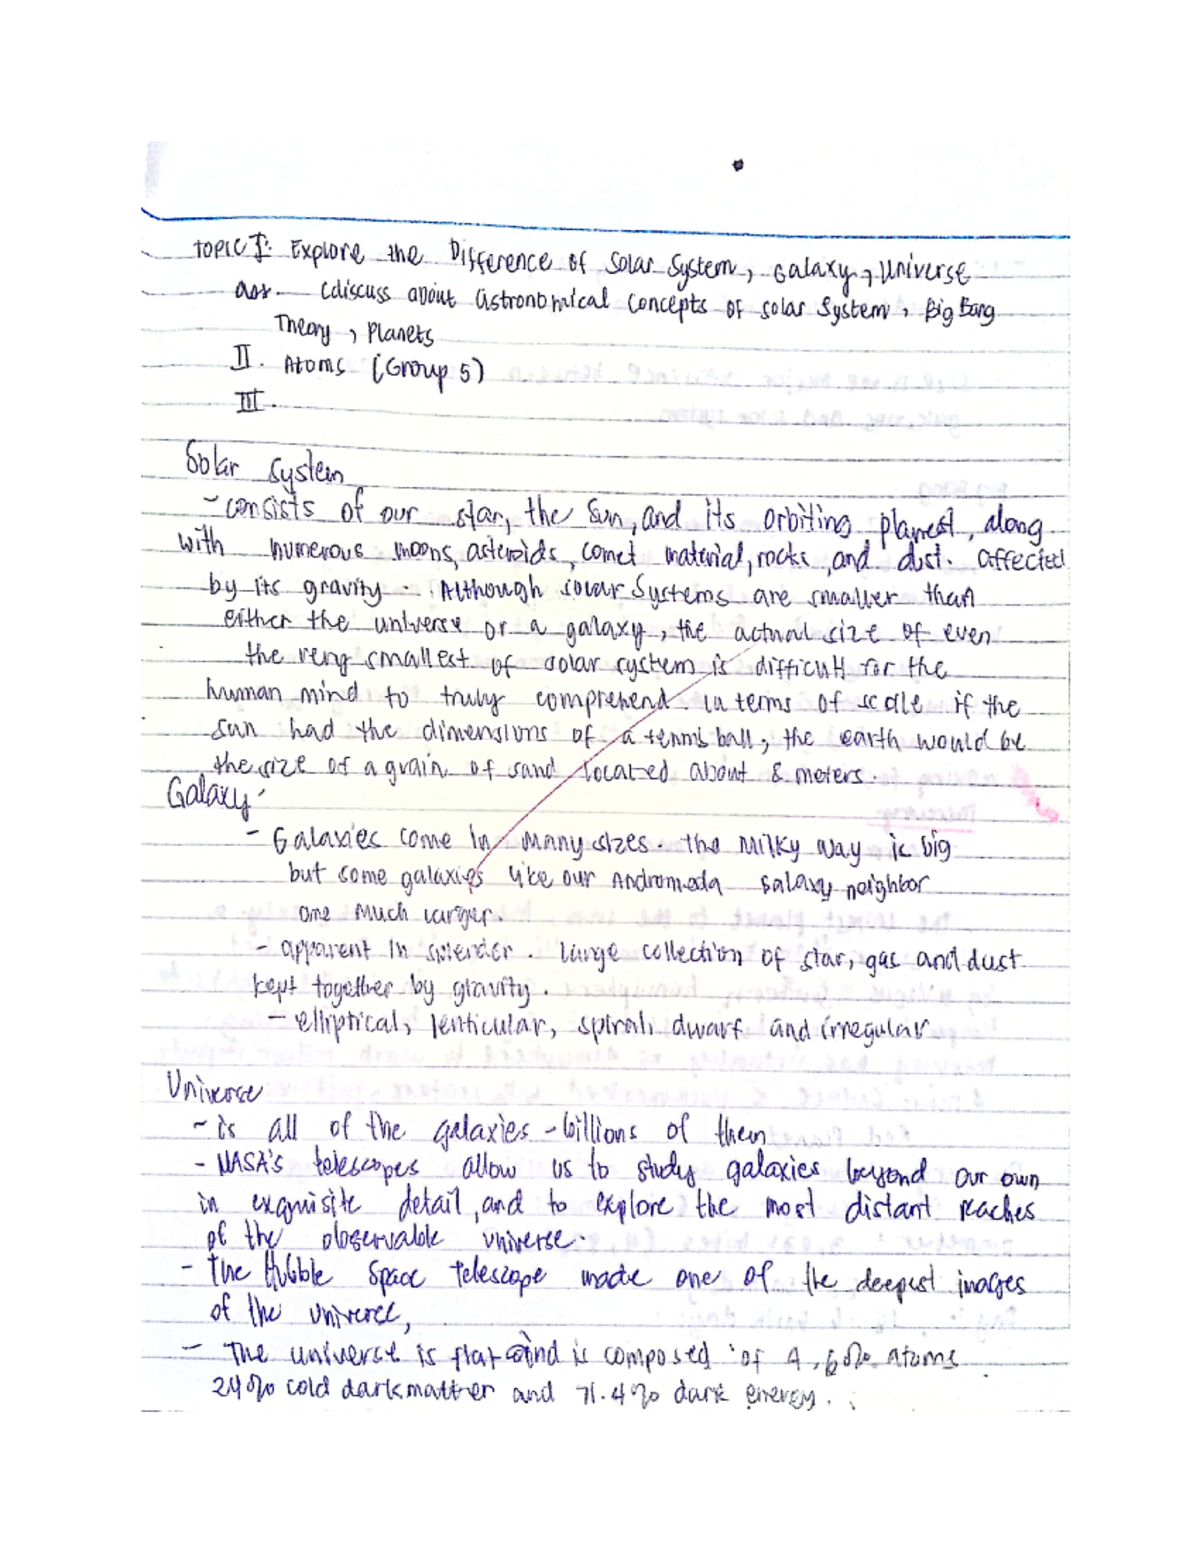 TOPIC I: Explore the Difference of Solar System, Galaxy, Universe
(discuss about astronomical concepts of solar System, Big Bang
Theory, Planets
II. Atoms (Group 5)
III.
Solar System
- consists of our star, the Sun, and its orbiting planest, along
with numerous moons, asteroids, comet material, rocks, and dust. affected
by its gravity. Although solar Systems are smaller than
either the universe or a galaxy, the actual size of even
the very smallest of solar system is difficult for the
human mind to truly comprehend. in terms of scale if the
sun had the dimensions of a tennis ball, the earth would be
the size of a grain of sand located about 8 meters.
Galaxy
- Galaxies come in many sizes. the Milky Way is big
but some galaxies like our Andromeda Galaxy neighbor
are Much larger.
- apparent in splendor. large collection of star, gas and dust
kept together by gravity.
- elliptical, lenticular, spiral, dwarf and irregular
Universe
- is all of the galaxies - billions of them
- NASA's telescopes allow us to study galaxies beyond our own
in exquisite detail, and to explore the most distant reaches
of the observable universe.
- the Hubble Space telescope made one of the deepest images
of the universe,
- The universe is flat and is composed of 4.6% atoms
24% cold dark matter and 71.4% dark energy.